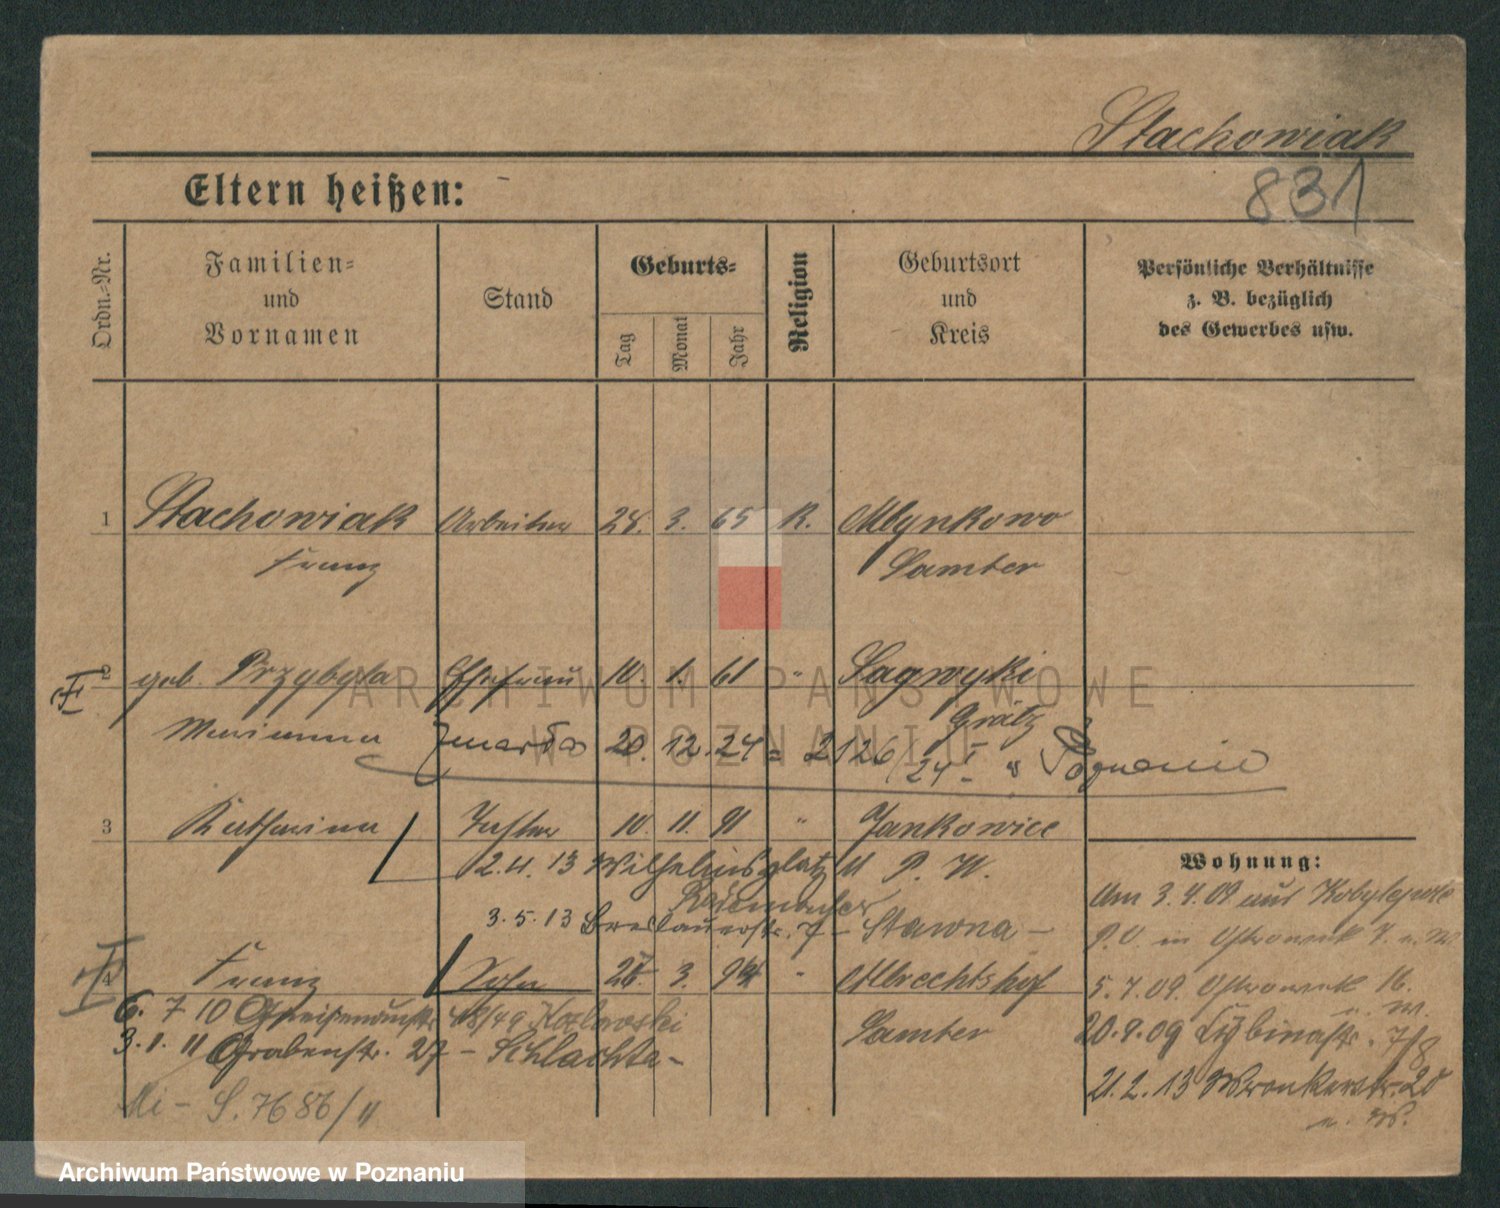 Stachowiak
831
Eltern heißen: -
Ordn.-Nr.
Familien- und Vornamen
Stand
Geburts-
Tag
Monat
Jahr
Religion
Geburtsort und Kreis
Persönliche Verhältnisse z. B. bezüglich des Gewerbes usw.
1 Stachowiak Arbeiter 28. 3. 65 K. Mlynkowo
Franz Samter
2 geb. Przybyla Ehefrau 10. 1. 61 " Sagwyki
Marianna Grätz
zmarła 20. 12. 24 = 2126/24 I " Poznaniu
3 Katharina Tochter 10. 11. 91 " Jankowice
Wohnung:
12. 4. 13 Wilhelmsplatz 11 P. W.
Am 3. 4. 09 aus Kobylepole
3. 5. 13 Breslauerstr. 7 - Stawna -
P. O. in Ostrowek 7.
4 Franz Sohn 28. 3. 94 " Albrechtshof
5. 7. 09. Ostrowek 16.
6. 7 10 Gneisenaustr 48/49 Kozlowski
Samter
20. 9. 09 Cybinastr. 7/8
3. 1. 11 Grabenstr. 27 - Schlachta -
21. 2. 13 Wronkerstr. 20
Mi - S. 7686/11
ARCHIWUM PAŃSTWOWE
W POZNANIU
Archiwum Państwowe w Poznaniu